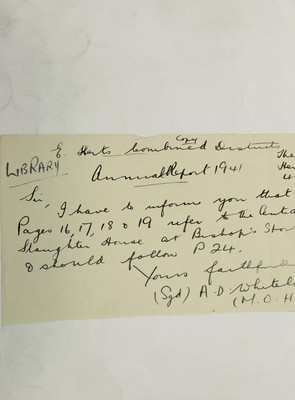 Copy
E. Herts Combined Districts
LIBRARY
The
Her
Annual Report 1941
4
Sir,
I have to inform you that
Pages 16, 17, 18 & 19 refer to the
Slaughter House at Bishop's Stor
& should follow P 24.
Yours faithful
(Sgd) A. D. White
(M. O. H